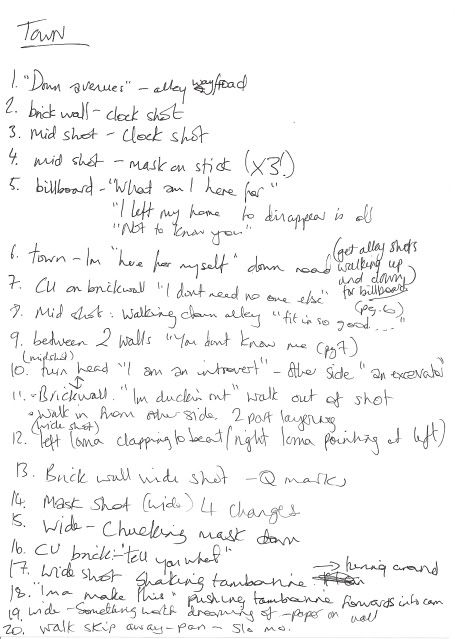 Town
1. "Down avenues" - alley way/road
2. brick wall - clock shot
3. Mid shot - clock shot
4. mid shot - mask on stick (x3!)
5. billboard - "What am I here for"
"I left my home to disappear is all
"Not to know you"
6. town - Im "here for myself" down road (get alley shots walking up and down for billboard (pg.6)
7. CU on brickwall "I dont need no one else"
8. Mid shot: walking down alley "fit in so good...."
9. between 2 walls "You dont know me (pg7)
(midshot)
10. turn head "I am an introvert" - other side "an excavator"
11. Brickwall. "Im duckin out" walk out of shot
walk in from other side. 2 part layering
(wide shot)
12. left lana clapping to beat/right lana pointing at left)
13. Brick wall wide shot - Q marks
14. Mask shot (wide) 4 changes
15. Wide - Chucking mask down
16. CU brick - "tell you what"
17. Wide shot shaking tambourine → turning around
18. "Ima make this" pushing tambourine forwards into cam
19. wide - Something worth dreaming of - paper on wall
20. walk skip away - pan - slo mo.